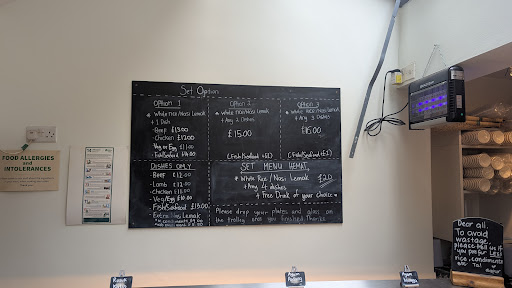 Set Option
Option 1
* White rice/Nasi Lemak
+ 1 Dish
Beef £13.00
Chicken £12.00
Veg or Egg £11.00
Fish/Seafood £14.00
Option 2
* White rice/Nasi Lemak
+ Any 2 Dishes
£15.00
(Fish/Seafood +£1)
Option 3
* White rice/Nasi Lemak
+ Any 3 Dishes
£16.00
(Fish/Seafood +£1)
DISHES ONLY
- Beef £12
- Lamb £12
- Chicken £11
- Veg/Egg £10
- Fish/Seafood £13.00
Extra Nasi Lemak
SET MENU HEMAT
* White Rice / Nasi Lemak
+ Any 4 dishes £20
+ Free Drink of your Choice
Please drop your plates and glass on
the trolley once you finished. Thanks
FOOD ALLERGIES
and
INTOLERANCES
Dear all,
To avoid
wastage,
please tell us if
you prefer Less
rice, condiments
etc. Ta!